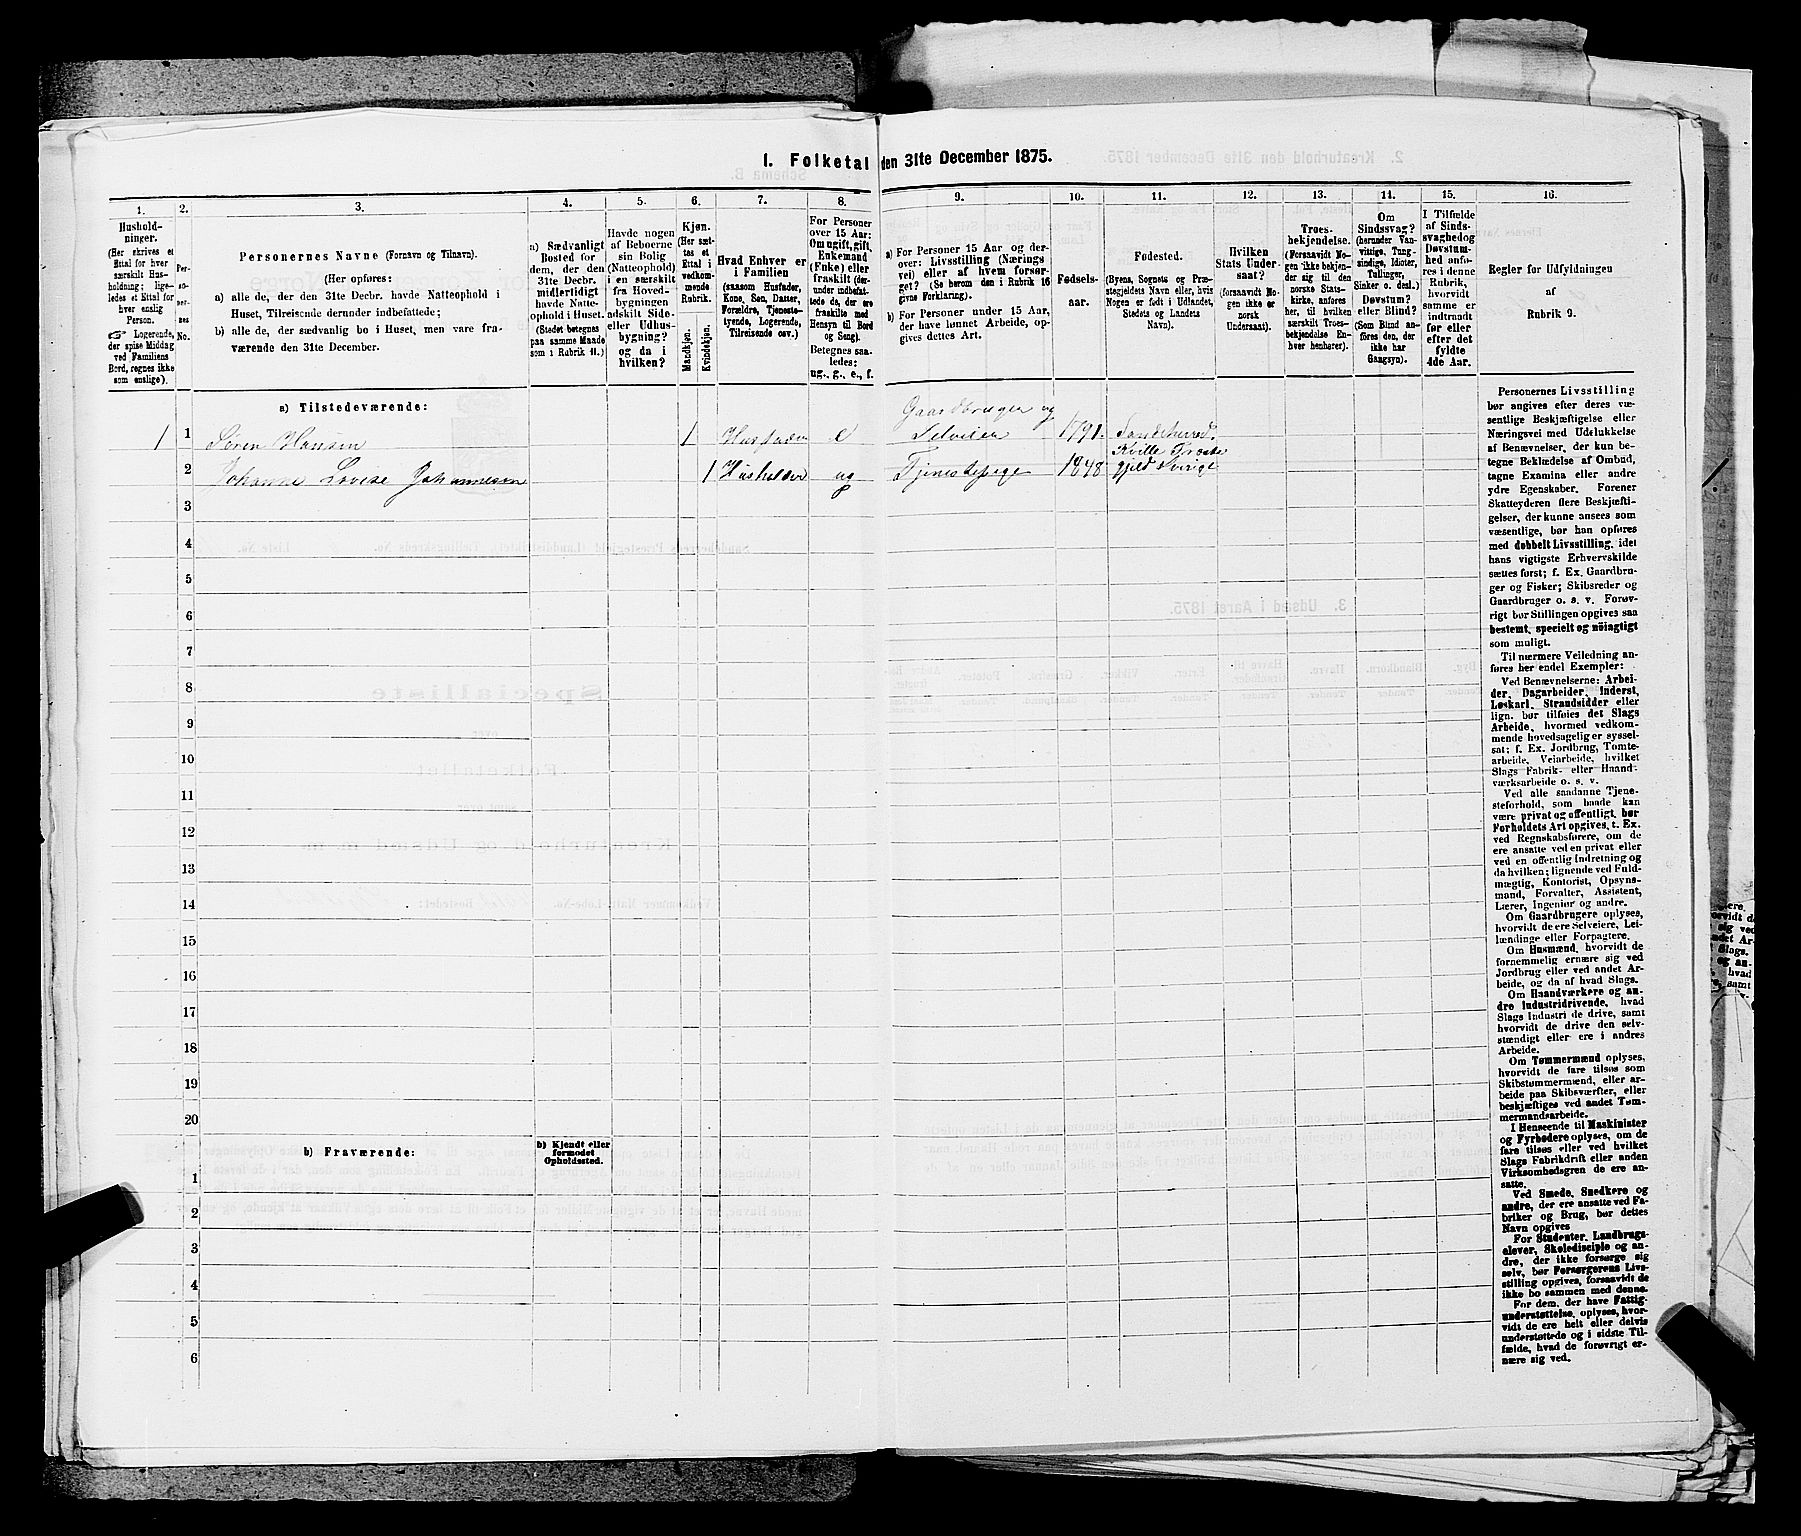 1. Folketal den 31te December 1875.
1.
Hushold-
ninger.
(Her skrives et
Ettal for hver
særskilt Hus-
holdning; lige-
ledes et Ettal for
hver enslig
Person.
Logerende,
der spise Middag
ved Familiens
Bord, regnes ikke
som enslige).
2.
Per-
so-
ner-
nes
No.
3.
Personernes Navne (Fornavn og Tilnavn).
(Her opføres:
a) alle de, der den 31te Decbr. havde Natteophold i
Huset, Tilreisende derunder indbefattede;
b) alle de, der sædvanlig bo i Huset, men vare fra-
værende den 31te December.
4.
a) Sædvanligt
Bosted for
dem, der den
31te Decbr.
midlertidigt
havde Natte-
ophold i Huset.
(Stedet betegnes
paa samme Maade
som i Rubrik 11.)
5.
Havde nogen
af Beboerne
sin Bolig
(Natteophold)
i en særskilt
fra Hoved-
bygningen
adskilt Side-
eller Udhus-
bygning?
og da i
hvilken?
6.
Kjøn.
(Her sæt-
tes et
Ettal i
vedkom-
mende
Rubrik.
Mandkjøn.
Kvindekjøn.
7.
Hvad Enhver er
i Familien
(saasom Husfader,
Kone, Søn, Datter,
Forældre, Tjeneste-
tyende, Logerende,
Tilreisende osv.)
8.
For Personer
over 15 Aar:
Om ugift, gift,
Enkemand
(Enke) eller
fraskilt (der-
under indbefat-
tede de, der ere
fraskilte med
Hensyn til Bord
og Seng).
Betegnes saa-
ledes:
ug., g., e., f.
9.
a) For Personer 15 Aar og der-
over: Livsstilling (Nærings-
vei) eller af hvem forsør-
get? (Se herom den i Rubrik 16
givne Forklaring).
b) For Personer under 15 Aar,
der have lønnet Arbeide, op-
gives dettes Art.
10.
Fødsels-
aar.
11.
Fødested.
(Byens, Sognets og Præ-
stegjeldets Navn eller, hvis
Nogen er født i Udlandet,
Stedets og Landets
Navn).
12.
Hvilken
Stats Under-
saat?
(forsaavidt No-
gen ikke er
norsk
Undersaat).
13.
Troes-
bekjendelse.
(Forsaavidt No-
gen ikke bekjen-
der sig til den
norske Stats-
kirke, anføres
her, til hvilken
særskilt Troes-
bekjendelse En-
hver henhører).
14.
Om
Sindssvag?
(herunder Van-
vittige, Tung-
sindige, Idioter,
Tullinger,
Sinker o. desl.)
Døvstum?
eller Blind?
(Som Blind an-
føres den, der
ikke har
Gangsyn).
15.
I Tilfælde
af Sinds-
svaghed og
Døvstum-
hed anfø-
res i denne
Rubrik,
hvorvidt
samme er
indtraadt
før eller
efter det
fyldte
4de Aar.
16.
Regler for Udfyldningen
af
Rubrik 9.
a) Tilstedeværende:
1 1 Søren Hansen 1 Husfader e Gaardbruger og
Selveier 1791. Sandeherred.
2 Johanne Lovise Johannesen 1 Husholder ug Tjenestepige 1848 Kville Præste
gjeld Sverige
3
4
5
6
7
8
9
10
11
12
13
14
15
16
17
18
19
20
b) Fraværende:
b) Kjendt eller
formodet
Opholdssted.
1
2
3
4
5
6
Personernes Livsstilling
bør angives efter deres væ-
sentlige Beskjæftigelse eller
Næringsvei med Udelukkelse
af Benævnelser, der kun be-
tegne Beklædelse af Ombud,
tagne Examina eller andre
ydre Egenskaber. Forener
Skatteyderen flere Beskjæfti-
gelser, der kunne ansees som
væsentlige, bør han opføres
med dobbelt Livsstilling, idet
hans vigtigste Erhvervskilde
sættes først; f. Ex. Gaardbru-
ger og Fisker; Skibsreder og
Gaardbruger o. s. v. Forøv-
rigt bør Stillingen opgives saa
bestemt, specielt og nöiagtigt
som muligt.
Til nærmere Veiledning an-
føres her endel Exempler:
Ved Benævnelserne: Arbei-
der, Dagarbeider, Inderst,
Løskarl, Strandsidder eller
lign. bør tilføies det Slags
Arbeide, hvormed vedkom-
mende hovedsagelig er syssel-
sat; f. Ex. Jordbrug, Tomte-
arbeide, Veiarbeide, hvilket
Slags Fabrik- eller Haand-
værksarbeide o. s. v.
Ved alle saadanne Tjene-
steforhold, som baade kan
være privat og offentligt, bør
Forholdets Art opgives, t. Ex.
ved Regnskabsførere, om de
ere ansatte ved en privat eller
ved en offentlig Indretning og
da hvilken; lignende ved Fuld-
mægtig, Kontorist, Opsyns-
mand, Forvalter, Assistent,
Lærer, Ingeniør og andre.
Om Gaardbrugere oplyses,
hvorvidt de ere Selveiere, Lei-
lændinge eller Forpagtere.
Om Husmænd, hvorvidt de
fornemmelig ernære sig ved
Jordbrug eller ved andet Ar-
beide, og da af hvad Slags.
Om Haandværkere og an-
dre Industridrivende, hvad
Slags Industri de drive, samt
hvorvidt de drive den selv-
stændigt eller ere i andres
Arbeide.
Om Tømmermænd oplyses,
hvorvidt de fare tilsøs som
Skibstømmermænd, eller ar-
beide paa Skibsværfter, eller
beskjæftiges ved andet Tøm-
mermandsarbeide.
I Henseende til Maskinister
og Fyrbødere oplyses, om de
fare tilsøs eller ved hvilket
Slags Fabrikdrift eller anden
Virksomhedsgren de ere an-
satte.
Ved Smede, Snedkere og
andre, der ere ansatte ved Fa-
briker og Brug, bør dettes
Navn opgives
For Studenter, Landbrugs-
elever, Skoledisciple og an-
dre, der ikke forsørge sig
selv, bør Forsørgerens Livs-
stilling opgives, forsaavidt de
ikke bo sammen med denne.
For dem, der have Fattig-
understøttelse, oplyses, hvor-
vidt de ere helt eller delvis
understøttede og i sidste Til-
fælde, hvad de forøvrigt er-
nære sig ved.